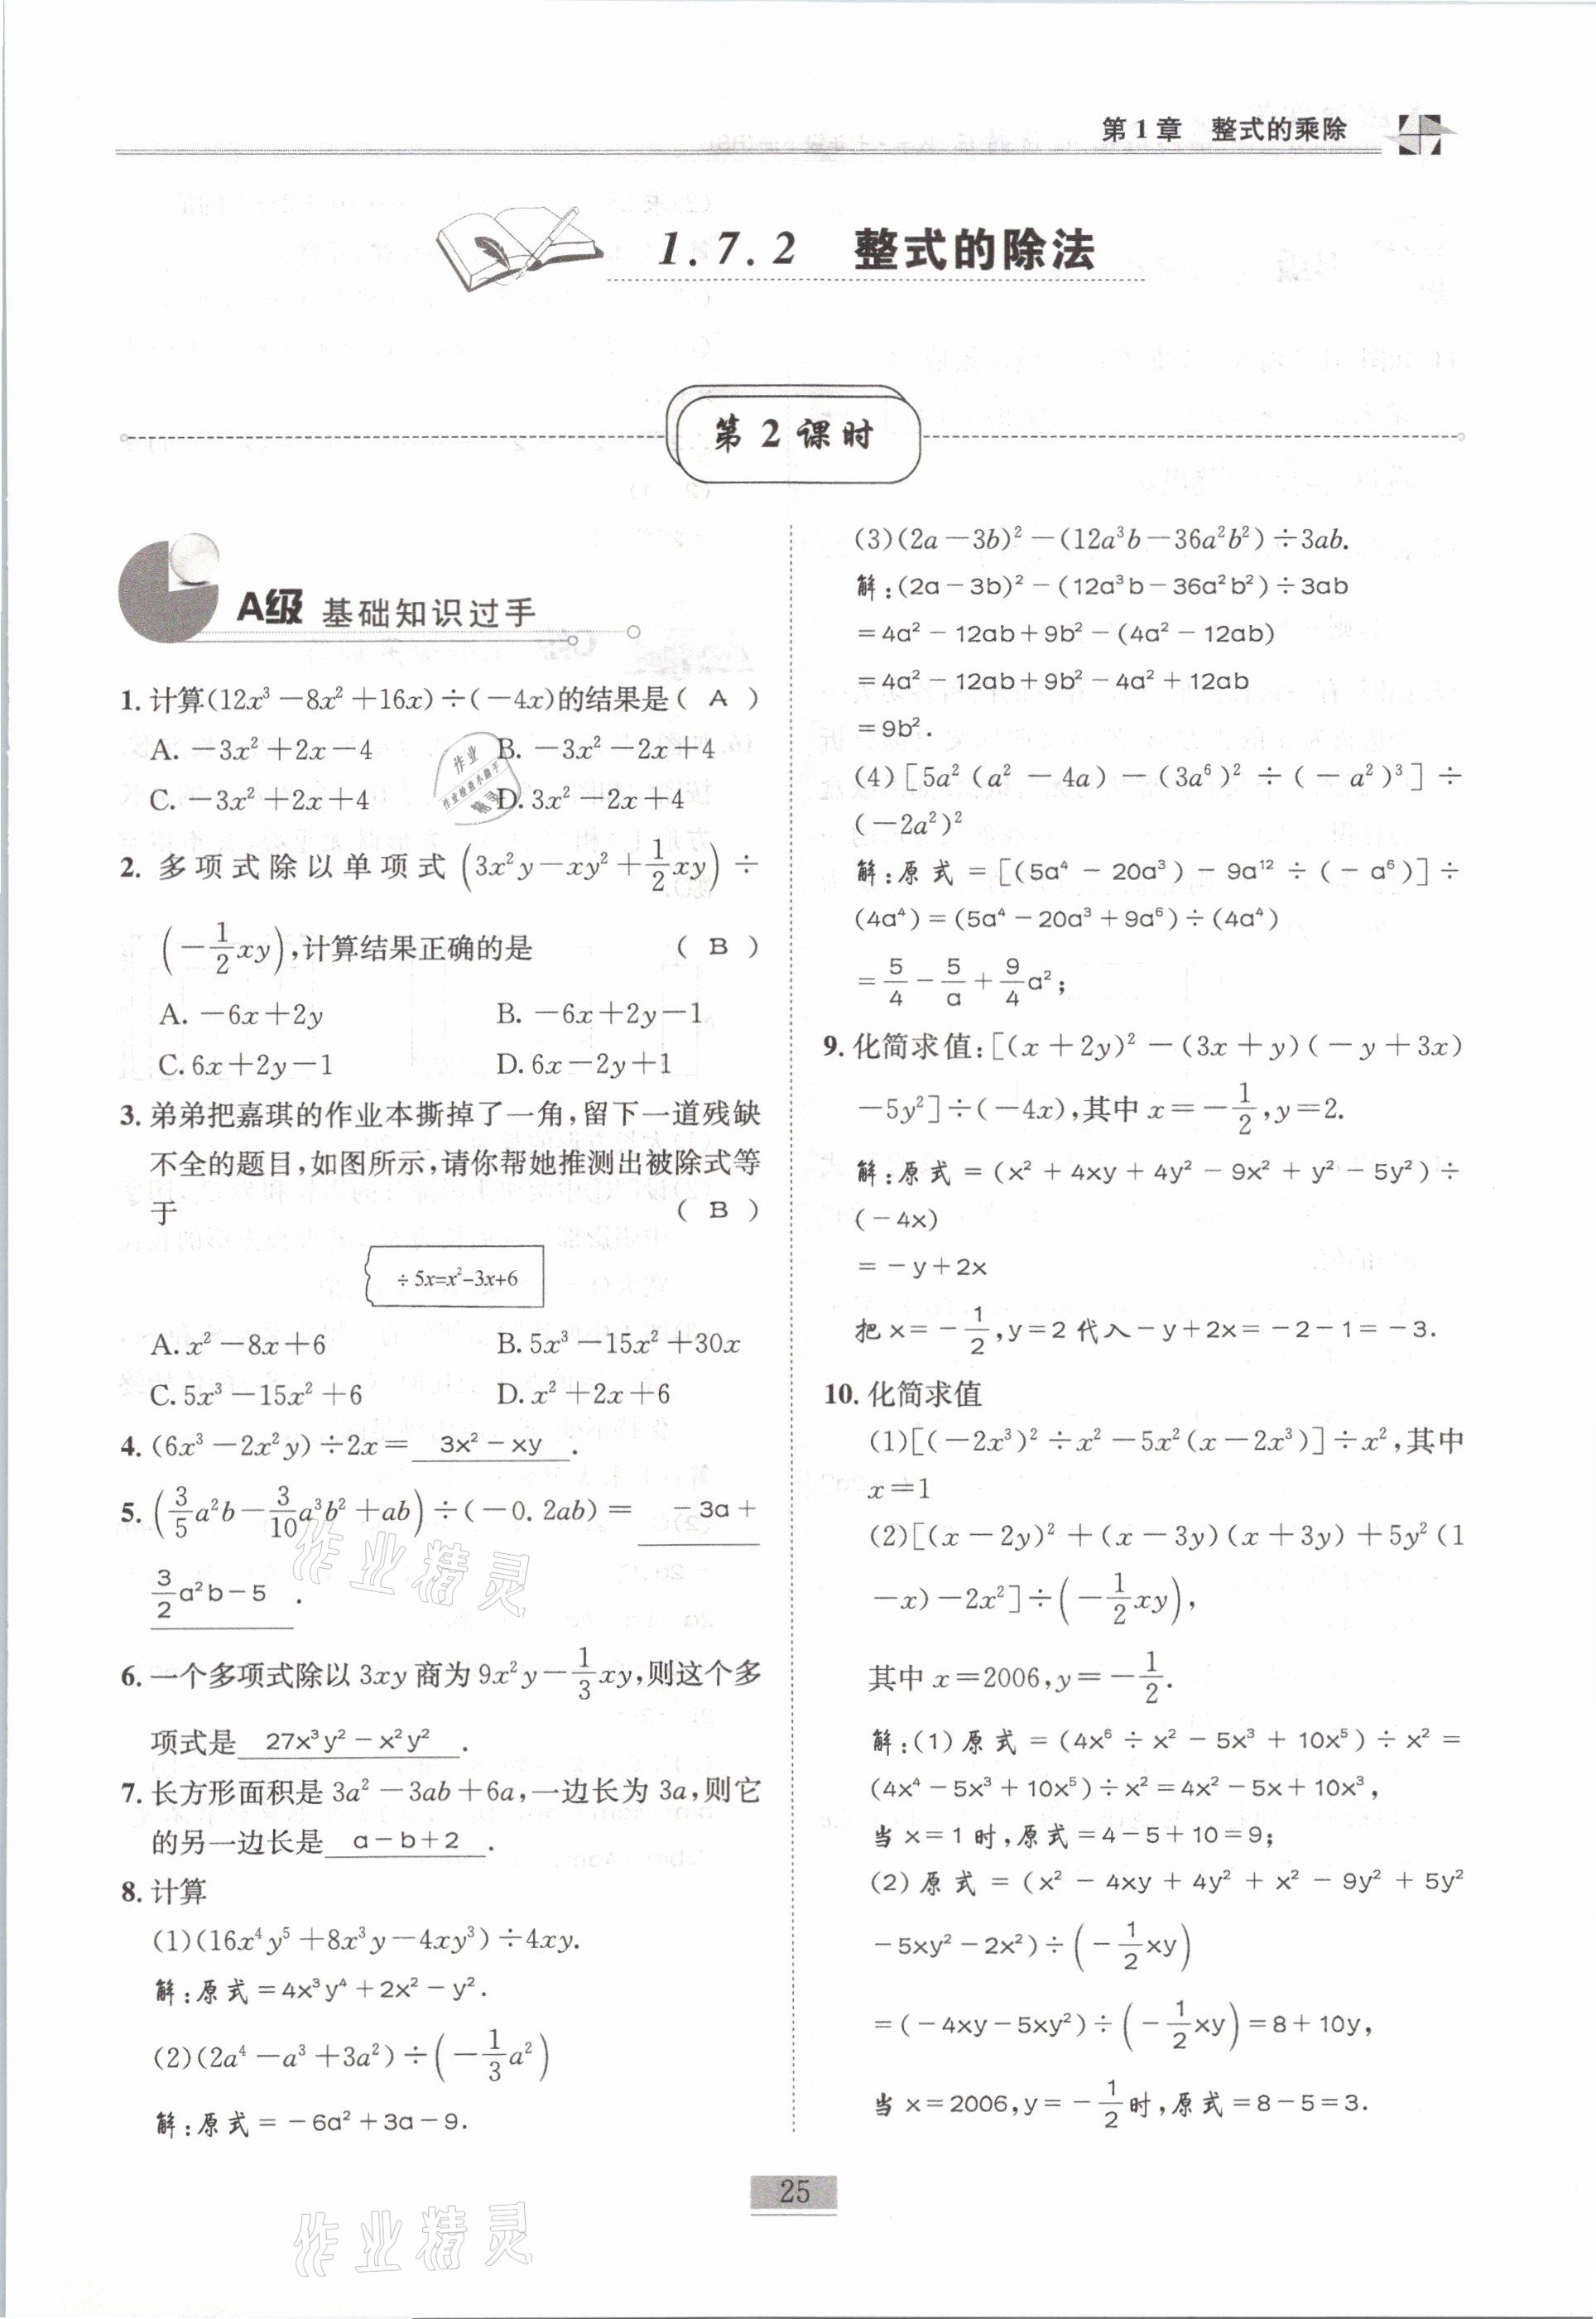 第1章 整式的乘除
1.7.2 整式的除法
第2课时
A级 基础知识过手
1. 计算(12x³－8x²＋16x)÷(－4x)的结果是( A )
A. －3x²＋2x－4 B. －3x²－2x＋4
C. －3x²＋2x＋4 D. 3x²－2x＋4
2. 多项式除以单项式(3x²y－xy²＋1/2xy)÷
(－1/2xy),计算结果正确的是 ( B )
A. －6x＋2y B. －6x＋2y－1
C. 6x＋2y－1 D. 6x－2y＋1
3. 弟弟把嘉琪的作业本撕掉了一角,留下一道残缺
不全的题目,如图所示,请你帮她推测出被除式等
于 ( B )
÷5x=x²-3x+6
A. x²－8x＋6 B. 5x³－15x²＋30x
C. 5x³－15x²＋6 D. x²＋2x＋6
4. (6x³－2x²y)÷2x＝ 3x²－xy .
5. (3/5a²b－3/10a³b²＋ab)÷(－0.2ab)＝ －3a＋
3/2a²b－5 .
6. 一个多项式除以3xy商为9x²y－1/3xy,则这个多
项式是 27x³y²－x²y² .
7. 长方形面积是3a²－3ab＋6a,一边长为3a,则它
的另一边长是 a－b＋2 .
8. 计算
(1)(16x⁴y⁵＋8x³y－4xy³)÷4xy.
解:原式＝4x³y⁴＋2x²－y².
(2)(2a⁴－a³＋3a²)÷(－1/3a²)
解:原式＝－6a²＋3a－9.
(3)(2a－3b)²－(12a³b－36a²b²)÷3ab.
解:(2a－3b)²－(12a³b－36a²b²)÷3ab
＝4a²－12ab＋9b²－(4a²－12ab)
＝4a²－12ab＋9b²－4a²＋12ab
＝9b².
(4)[5a²(a²－4a)－(3a⁶)²÷(－a²)³]÷
(－2a²)²
解:原式＝[(5a⁴－20a³)－9a¹²÷(－a⁶)]÷
(4a⁴)＝(5a⁴－20a³＋9a⁶)÷(4a⁴)
＝5/4－5/a＋9/4a²;
9. 化简求值:[(x＋2y)²－(3x＋y)(－y＋3x)
－5y²]÷(－4x),其中x＝－1/2,y＝2.
解:原式＝(x²＋4xy＋4y²－9x²＋y²－5y²)÷
(－4x)
＝－y＋2x
把x＝－1/2,y＝2代入－y＋2x＝－2－1＝－3.
10. 化简求值
(1)[(－2x³)²÷x²－5x²(x－2x³)]÷x²,其中
x＝1
(2)[(x－2y)²＋(x－3y)(x＋3y)＋5y²(1
－x)－2x²]÷(－1/2xy),
其中x＝2006,y＝－1/2.
解:(1)原式＝(4x⁶÷x²－5x³＋10x⁵)÷x²＝
(4x⁴－5x³＋10x⁵)÷x²＝4x²－5x＋10x³,
当x＝1时,原式＝4－5＋10＝9;
(2)原式＝(x²－4xy＋4y²＋x²－9y²＋5y²
－5xy²－2x²)÷(－1/2xy)
＝(－4xy－5xy²)÷(－1/2xy)＝8＋10y,
当x＝2006,y＝－1/2时,原式＝8－5＝3.
25
作业精灵
作业精灵